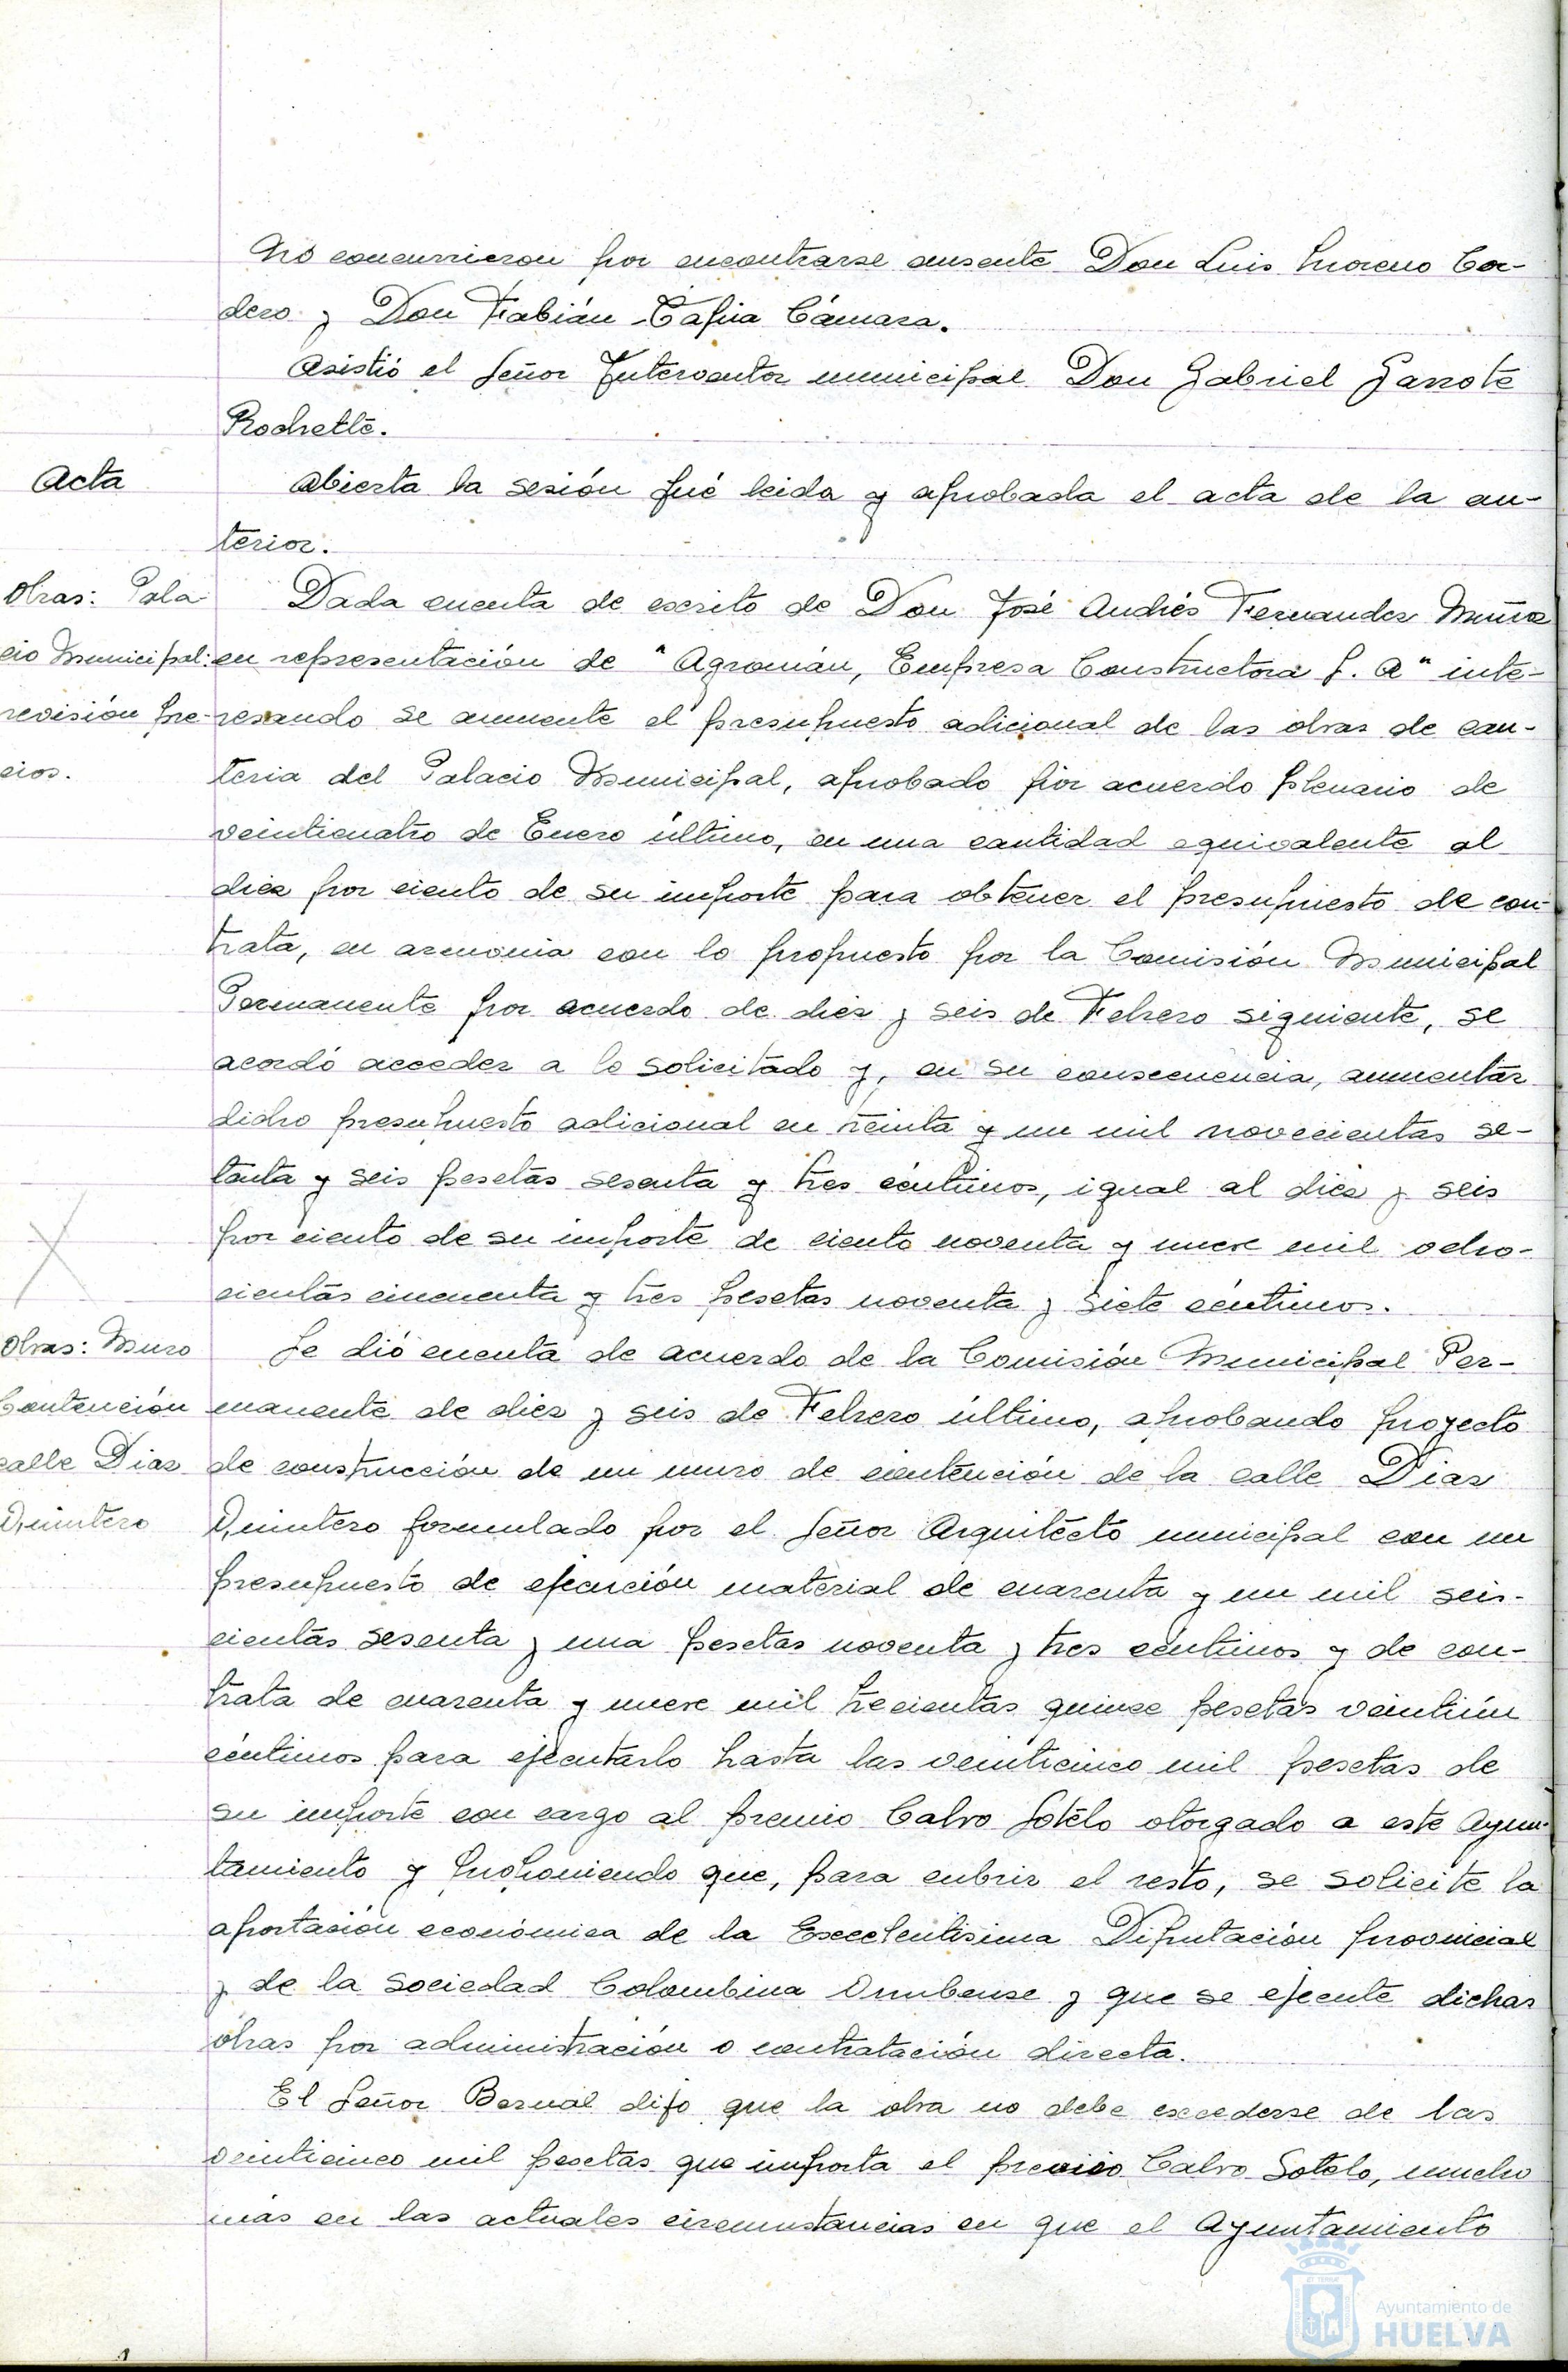 No concurrieron por encontrarse ausente Don Luis Moreno Cor-
dero y Don Fabián Tapia Cámara.
Asistió el Señor Interventor municipal Don Gabriel Garrote
Rochette.
Acta
Abierta la sesión fué leida y aprobada el acta de la an-
terior.
Obras: Pala
cio Municipal:
revisión pre-
cios.
Dada cuenta de escrito de Don José Andrés Fernandez Muñoz
en representación de "Agromán, Empresa Constructora S. A" inte-
resando se aumente el presupuesto adicional de las obras de can-
teria del Palacio Municipal, aprobado por acuerdo plenario de
veinticuatro de Enero último, en una cantidad equivalente al
diez por ciento de su importe para obtener el presupuesto de con-
trata, en armonia con lo propuesto por la Comisión Municipal
Permanente por acuerdo de diez y seis de Febrero siguiente, se
acordó acceder a lo solicitado y, en su consecuencia, aumentar
dicho presupuesto adicional en treinta y un mil novecientas se-
tenta y seis pesetas sesenta y tres céntimos, igual al diez y seis
por ciento de su importe de ciento noventa y nueve mil ocho-
cientas cincuenta y tres pesetas noventa y siete céntimos.
Obras: Muro
Contención
calle Diaz
Quintero
Se dió cuenta de acuerdo de la Comisión Municipal Per-
manente de diez y seis de Febrero último, aprobando proyecto
de construcción de un muro de contención de la calle Diaz
Quintero formulado por el Señor Arquitecto municipal con un
presupuesto de ejecución material de cuarenta y un mil seis-
cientas sesenta y una pesetas noventa y tres céntimos y de con-
trata de cuarenta y nueve mil trecientas quince pesetas veintiún
céntimos para ejecutarlo hasta las veinticinco mil pesetas de
su importe con cargo al premio Calvo Sotelo otorgado a este Ayun-
tamiento y proponiendo que, para cubrir el resto, se solicite la
aportación económica de la Excelentisima Diputación provincial
y de la Sociedad Colombina Onubense y que se ejecute dichas
obras por administración o contratación directa.
El Señor Bernal dijo que la obra no debe excederse de las
veinticinco mil pesetas que importa el premio Calvo Sotelo, mucho
mas en las actuales circunstancias en que el Ayuntamiento
Ayuntamiento de
HUELVA